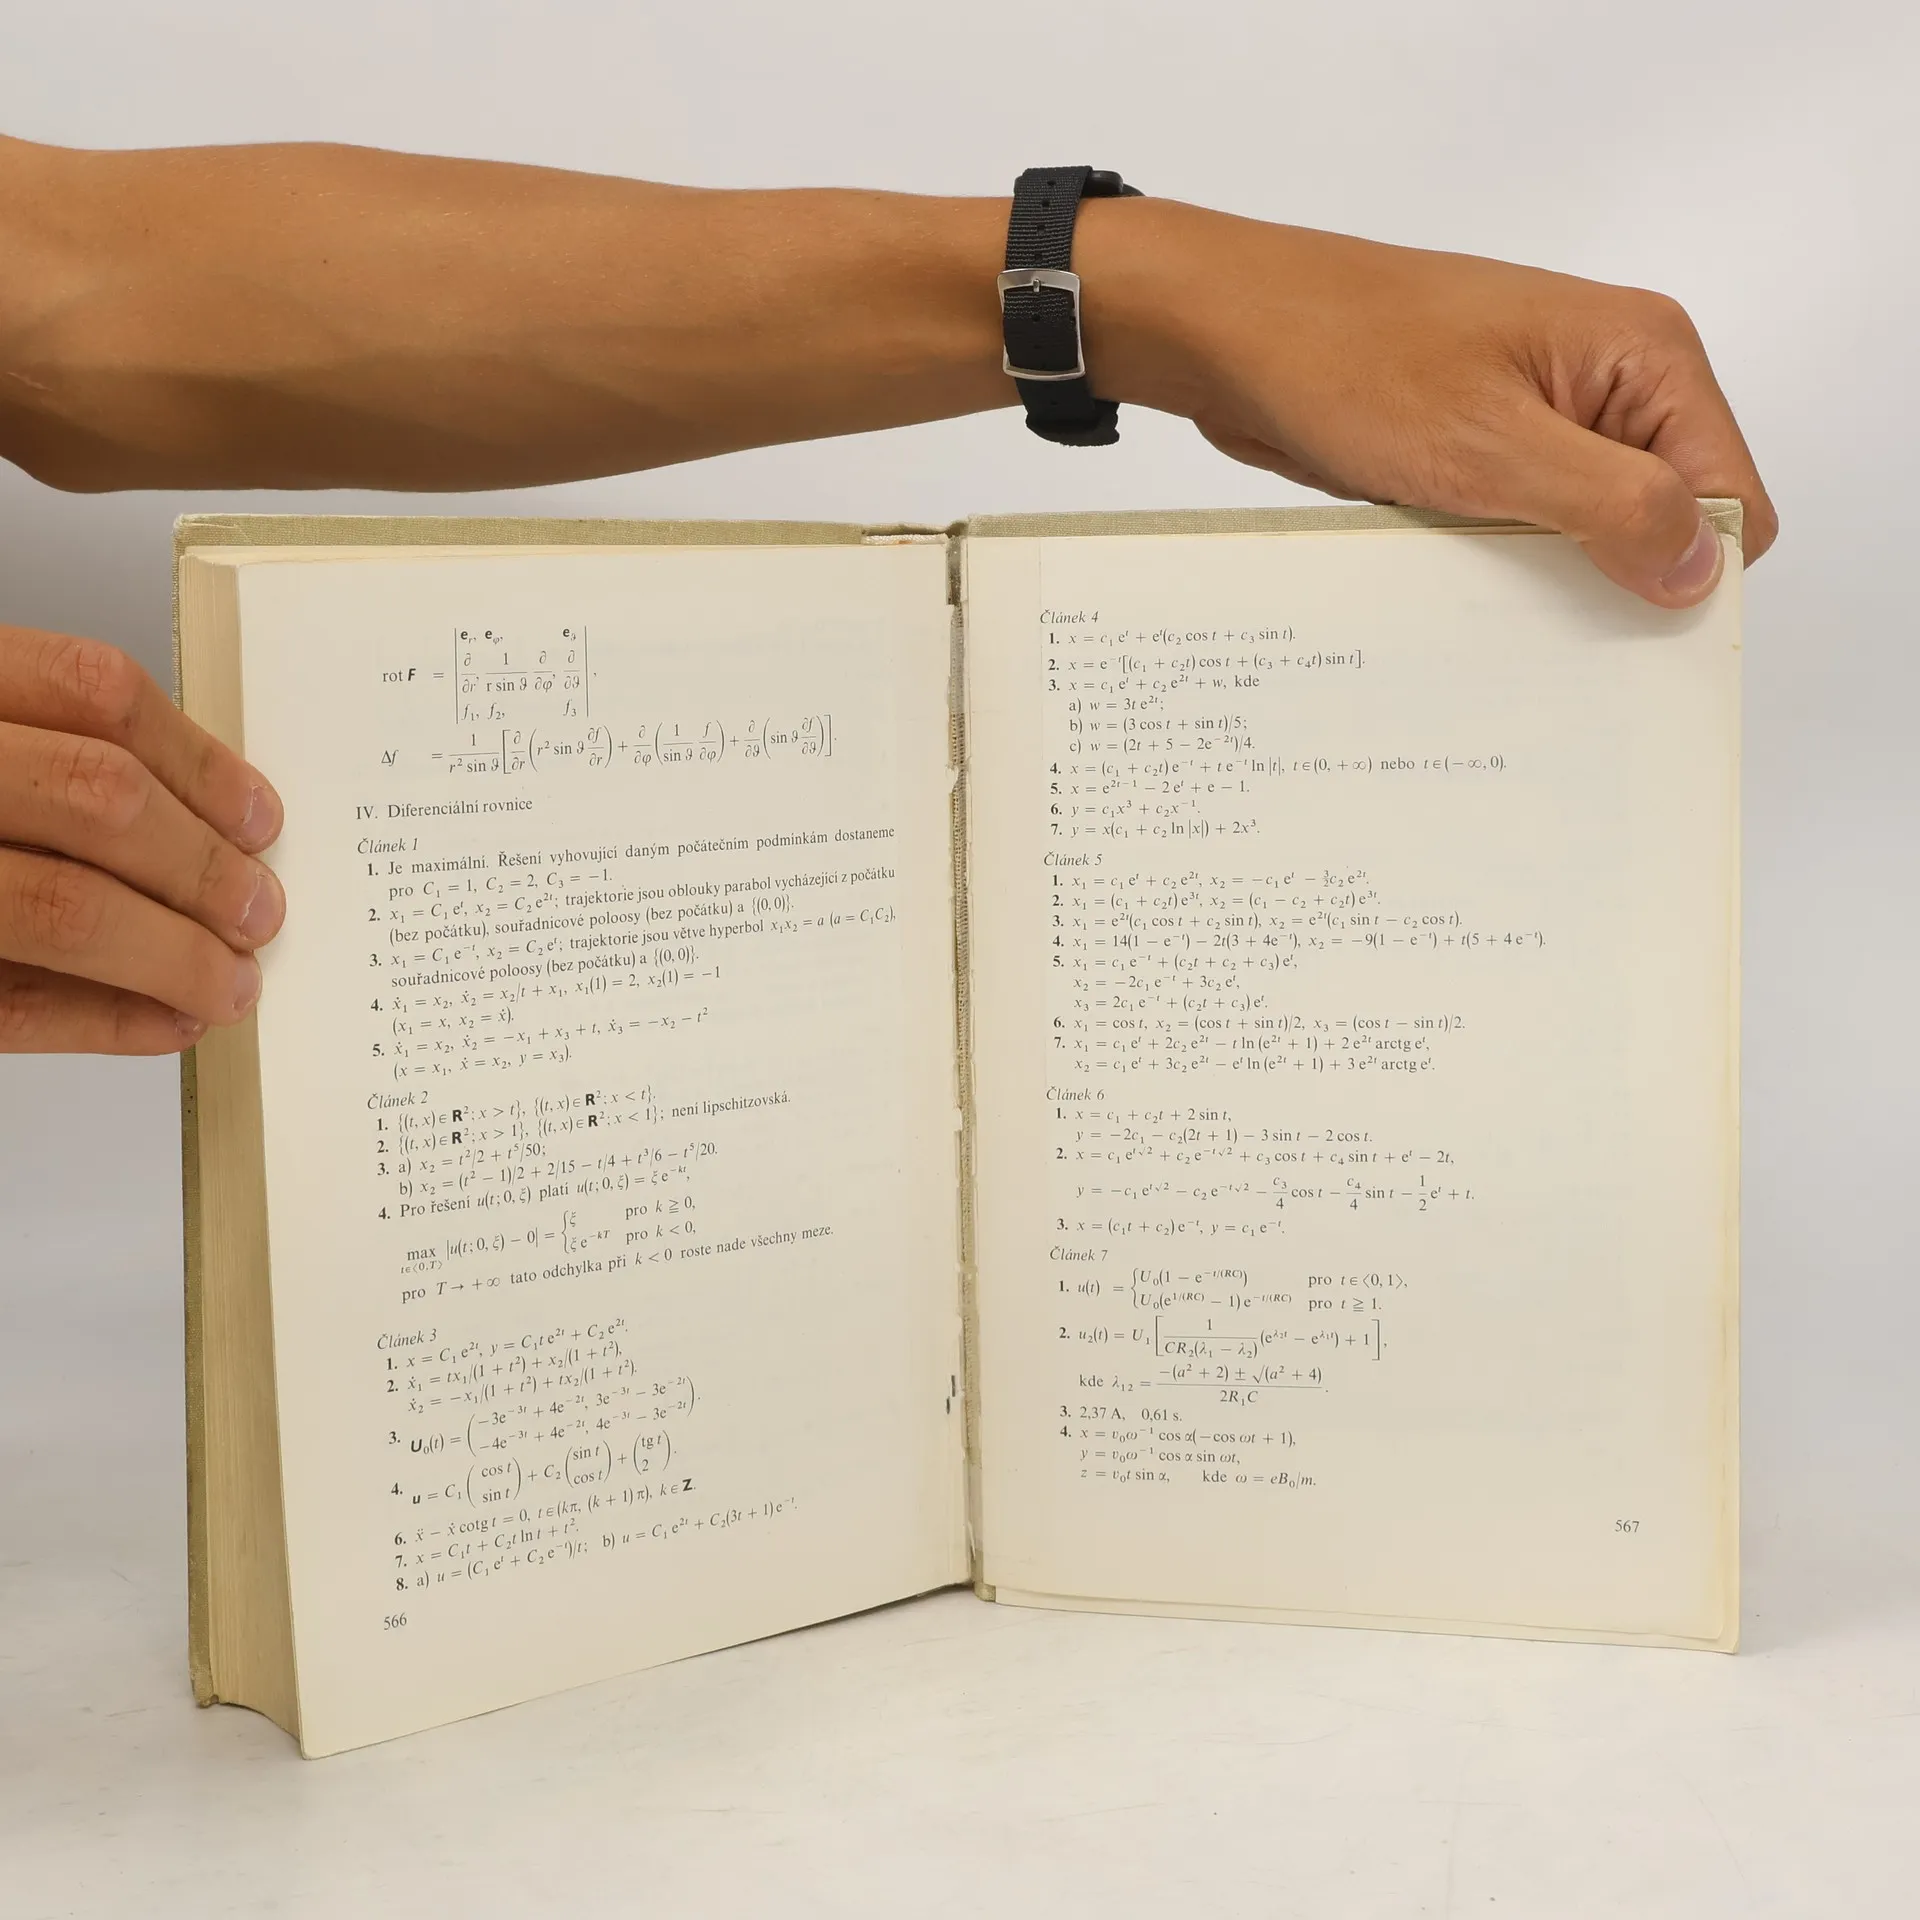 rot F = | e_r, e_φ, e_ϑ |
| ∂/∂r, 1/(r sin ϑ) ∂/∂φ, ∂/∂ϑ | ,
| f₁, f₂, f₃ |
Δf = 1/(r² sin ϑ) [∂/∂r (r² sin ϑ ∂f/∂r) + ∂/∂φ (1/(sin ϑ) f/∂φ) + ∂/∂ϑ (sin ϑ ∂f/∂ϑ)].
IV. Diferenciální rovnice
Článek 1
1. Je maximální. Řešení vyhovující daným počátečním podmínkám dostaneme
pro C₁ = 1, C₂ = 2, C₃ = −1.
2. x₁ = C₁eᵗ, x₂ = C₂e²ᵗ; trajektorie jsou oblouky parabol vycházející z počátku
(bez počátku), souřadnicové poloosy (bez počátku) a {(0, 0)}.
3. x₁ = C₁e⁻ᵗ, x₂ = C₂eᵗ; trajektorie jsou větve hyperbol x₁x₂ = a (a = C₁C₂),
souřadnicové poloosy (bez počátku) a {(0, 0)}.
4. ẋ₁ = x₂, ẋ₂ = x₂/t + x₁, x₁(1) = 2, x₂(1) = −1
(x₁ = x, x₂ = ẋ).
5. ẋ₁ = x₂, ẋ₂ = −x₁ + x₃ + t, ẋ₃ = −x₂ − t²
(x = x₁, ẋ = x₂, y = x₃).
Článek 2
1. {(t, x) ∈ R²; x > t}, {(t, x) ∈ R²; x < t}.
2. {(t, x) ∈ R²; x > 1}, {(t, x) ∈ R²; x < 1}; není lipschitzovská.
3. a) x₂ = t²/2 + t⁵/50;
b) x₂ = (t² − 1)/2 + 2/15 − t/4 + t³/6 − t⁵/20.
4. Pro řešení u(t; 0, ξ) platí u(t; 0, ξ) = ξ e⁻ᵏᵗ,
max_{t∈⟨0,T⟩} |u(t; 0, ξ) − 0| = { ξ pro k ≧ 0,
ξ e^{−kT} pro k < 0,
pro T → +∞ tato odchylka při k < 0 roste nade všechny meze.
Článek 3
1. x = C₁e²ᵗ, y = C₁te²ᵗ + C₂e²ᵗ.
2. ẋ₁ = tx₁/(1 + t²) + x₂/(1 + t²),
ẋ₂ = −x₁/(1 + t²) + tx₂/(1 + t²).
3. U₀(t) = ( −3e⁻³ᵗ + 4e⁻²ᵗ, 3e⁻³ᵗ − 3e⁻²ᵗ
−4e⁻³ᵗ + 4e⁻²ᵗ, 4e⁻³ᵗ − 3e⁻²ᵗ ).
4. u = C₁ (cos t / sin t) + C₂ (sin t / cos t) + (tg t / 2).
6. ẍ − ẋ cotg t = 0, t ∈ (kπ, (k + 1) π), k ∈ Z.
7. x = C₁t + C₂t ln t + t².
8. a) u = (C₁eᵗ + C₂e⁻ᵗ)/t; b) u = C₁e²ᵗ + C₂(3t + 1) e⁻ᵗ.
566
Článek 4
1. x = c₁eᵗ + eᵗ(c₂ cos t + c₃ sin t).
2. x = e⁻ᵗ[(c₁ + c₂t) cos t + (c₃ + c₄t) sin t].
3. x = c₁eᵗ + c₂e²ᵗ + w, kde
a) w = 3t e²ᵗ;
b) w = (3 cos t + sin t)/5;
c) w = (2t + 5 − 2e⁻²ᵗ)/4.
4. x = (c₁ + c₂t) e⁻ᵗ + t e⁻ᵗ ln |t|, t ∈ (0, +∞) nebo t ∈ (−∞, 0).
5. x = e^{2t−1} − 2eᵗ + e − 1.
6. y = c₁x³ + c₂x⁻¹.
7. y = x(c₁ + c₂ ln |x|) + 2x³.
Článek 5
1. x₁ = c₁eᵗ + c₂e²ᵗ, x₂ = −c₁eᵗ − 3/2 c₂e²ᵗ.
2. x₁ = (c₁ + c₂t) e³ᵗ, x₂ = (c₁ − c₂ + c₂t) e³ᵗ.
3. x₁ = e²ᵗ(c₁ cos t + c₂ sin t), x₂ = e²ᵗ(c₁ sin t − c₂ cos t).
4. x₁ = 14(1 − e⁻ᵗ) − 2t(3 + 4e⁻ᵗ), x₂ = −9(1 − e⁻ᵗ) + t(5 + 4e⁻ᵗ).
5. x₁ = c₁e⁻ᵗ + (c₂t + c₂ + c₃) eᵗ,
x₂ = −2c₁e⁻ᵗ + 3c₂eᵗ,
x₃ = 2c₁e⁻ᵗ + (c₂t + c₃) eᵗ.
6. x₁ = cos t, x₂ = (cos t + sin t)/2, x₃ = (cos t − sin t)/2.
7. x₁ = c₁eᵗ + 2c₂e²ᵗ − t ln (e²ᵗ + 1) + 2e²ᵗ arctg eᵗ,
x₂ = c₁eᵗ + 3c₂e²ᵗ − eᵗ ln (e²ᵗ + 1) + 3e²ᵗ arctg eᵗ.
Článek 6
1. x = c₁ + c₂t + 2 sin t,
y = −2c₁ − c₂(2t + 1) − 3 sin t − 2 cos t.
2. x = c₁e^{t√2} + c₂e^{−t√2} + c₃ cos t + c₄ sin t + eᵗ − 2t,
y = −c₁e^{t√2} − c₂e^{−t√2} − c₃/4 cos t − c₄/4 sin t − 1/2 eᵗ + t.
3. x = (c₁t + c₂) e⁻ᵗ, y = c₁e⁻ᵗ.
Článek 7
1. u(t) = { U₀(1 − e^{−t/(RC)}) pro t ∈ ⟨0, 1⟩,
U₀(e^{1/(RC)} − 1) e^{−t/(RC)} pro t ≧ 1.
2. u₂(t) = U₁ [ 1/(CR₂(λ₁ − λ₂)) (e^{λ₂t} − e^{λ₁t}) + 1 ],
kde λ₁₂ = (−(a² + 2) ± √(a² + 4))/(2R₁C).
3. 2,37 A, 0,61 s.
4. x = v₀ω⁻¹ cos α(−cos ωt + 1),
y = v₀ω⁻¹ cos α sin ωt,
z = v₀t sin α, kde ω = eB₀/m.
567